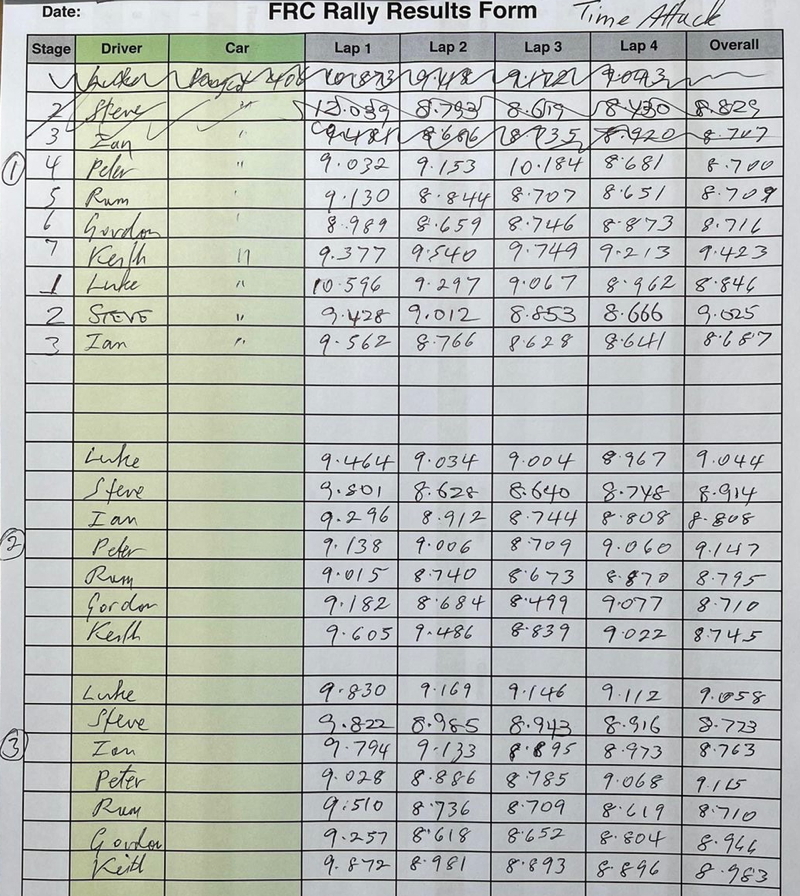 Date: FRC Rally Results Form Time Attack
Stage Driver Car Lap 1 Lap 2 Lap 3 Lap 4 Overall
2 Steve " 8.793 8.619 8.430 8.829
3 Ian " 8.686 8.920
① 4 Peter " 9.032 9.153 10.184 8.681 8.700
5 Rum " 9.130 8.844 8.707 8.651 8.709
6 Gordon " 8.989 8.659 8.746 8.873 8.716
7 Keith " 9.377 9.540 9.749 9.213 9.423
1 Luke " 10.596 9.297 9.067 8.962 8.846
2 STEVE " 9.428 9.012 8.853 8.666 9.025
3 Ian " 9.562 8.766 8.628 8.641 8.687
Luke 9.464 9.034 9.004 8.967 9.044
Steve 9.801 8.628 8.640 8.748 8.914
Ian 9.296 8.912 8.744 8.808 8.808
② Peter 9.138 9.006 8.709 9.060 9.147
Rum 9.015 8.740 8.673 8.870 8.795
Gordon 9.182 8.684 8.499 9.077 8.710
Keith 9.605 9.486 8.839 9.022 8.745
Luke 9.830 9.169 9.146 9.112 9.058
Steve 9.822 8.985 8.943 8.916 8.723
③ Ian 9.794 9.133 8.895 8.973 8.763
Peter 9.028 8.886 8.785 9.068 9.115
Rum 9.510 8.736 8.709 8.619 8.710
Gordon 9.257 8.618 8.652 8.804 8.966
Keith 9.872 8.981 8.893 8.896 8.983